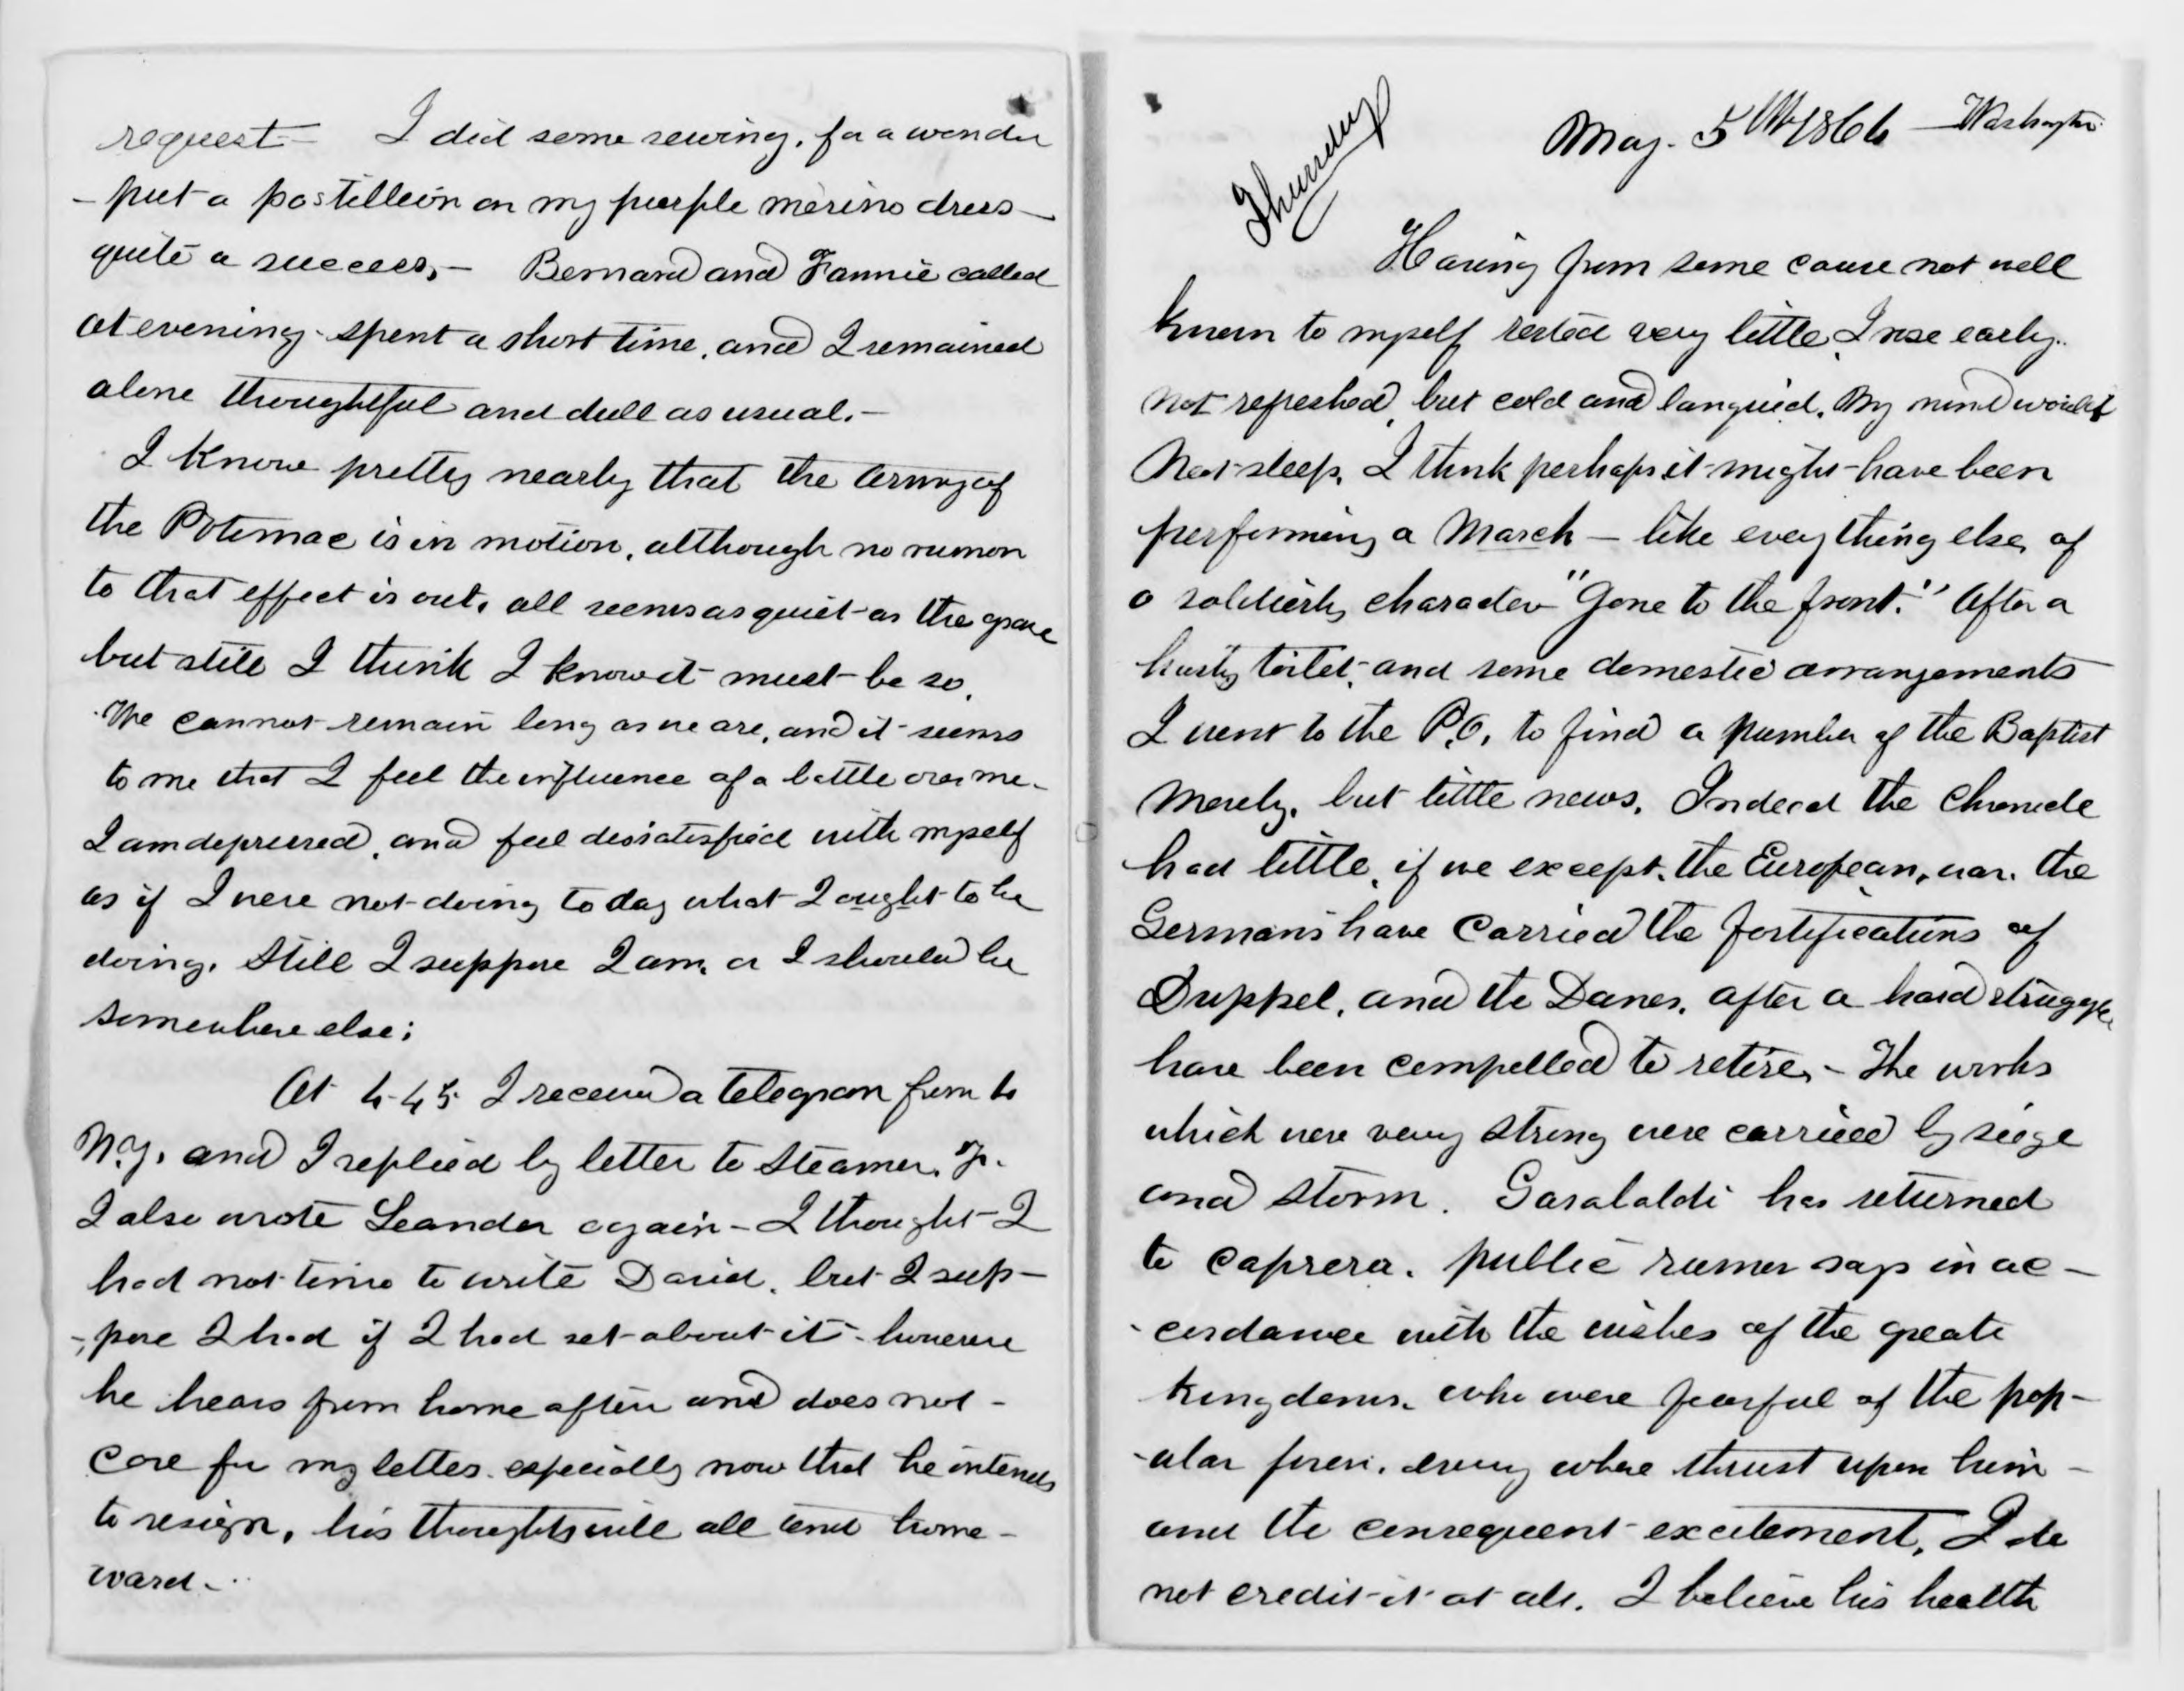 request – I did some sewing, for a wonder
– put a postillion on my purple merino dress –
quite a success, – Bernard and Fannie called
at evening – spent a short time, and I remained
alone thoughtful and dull as usual. –
I know pretty nearly that the Army of
the Potomac is in motion, although no rumor
to that effect is out, all seems as quiet as the grave
but still I think I know it must be so.
We cannot remain long as we are, and it seems
to me that I feel the influence of a battle over me –
I am depressed, and feel dissatisfied with myself
as if I were not doing today what I ought to be
doing. Still I suppose I am, or I should be
somewhere else;
At 4-45 I received a telegram from
N.Y. and I replied by letter to Steamer.
I also wrote Leander again – I thought I
had not time to write David, but I sup-
-pose I had if I had set about it – however
he hears from home often and does not –
care for my letter especially now that he intends
to resign, his thoughts will all tend home –
ward –
May. 5th 1864 – Washington
Thursday
Having from some cause not well
known to myself rested very little, I rose early.
not refreshed, but cold and languid. My mind would
not sleep. I think perhaps it might have been
performing a March – like every thing else, of
a soldierly character "Gone to the front." After a
hasty toilet, and some domestic arrangements
I went to the P.O. to find a number of the Baptist
merely, but little news. Indeed the Chronicle
had little, if we except, the European, war. the
Germans have carried the fortifications of
Duppel, and the Danes, after a hard struggle,
have been compelled to retire, – The works
which were very strong were carried by siege
and storm. Garabaldi has returned
to Caprera. public rumor says in ac –
– cordance with the wishes of the great
kingdoms, who were fearful of the pop –
– ular every where thrust upon him –
and the consequent excitement, I do
not credit it at all. I believe his health